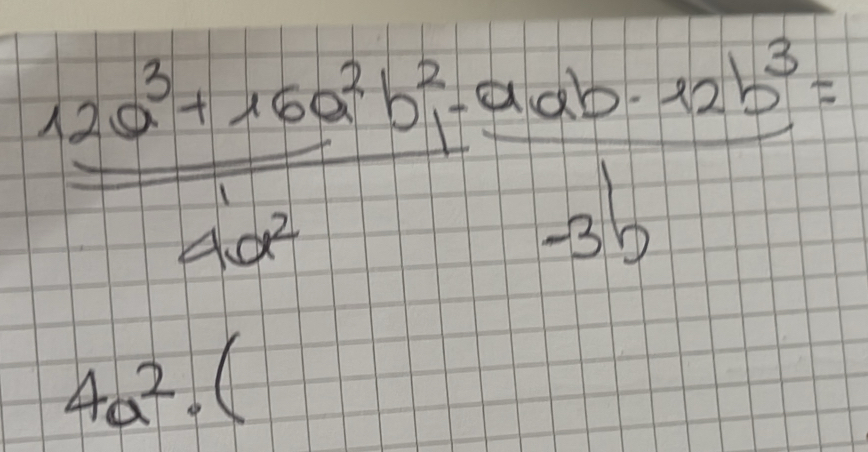 12a³ + 16a²b² - 9ab - 12b³ =
4a² -3b
4a² · (